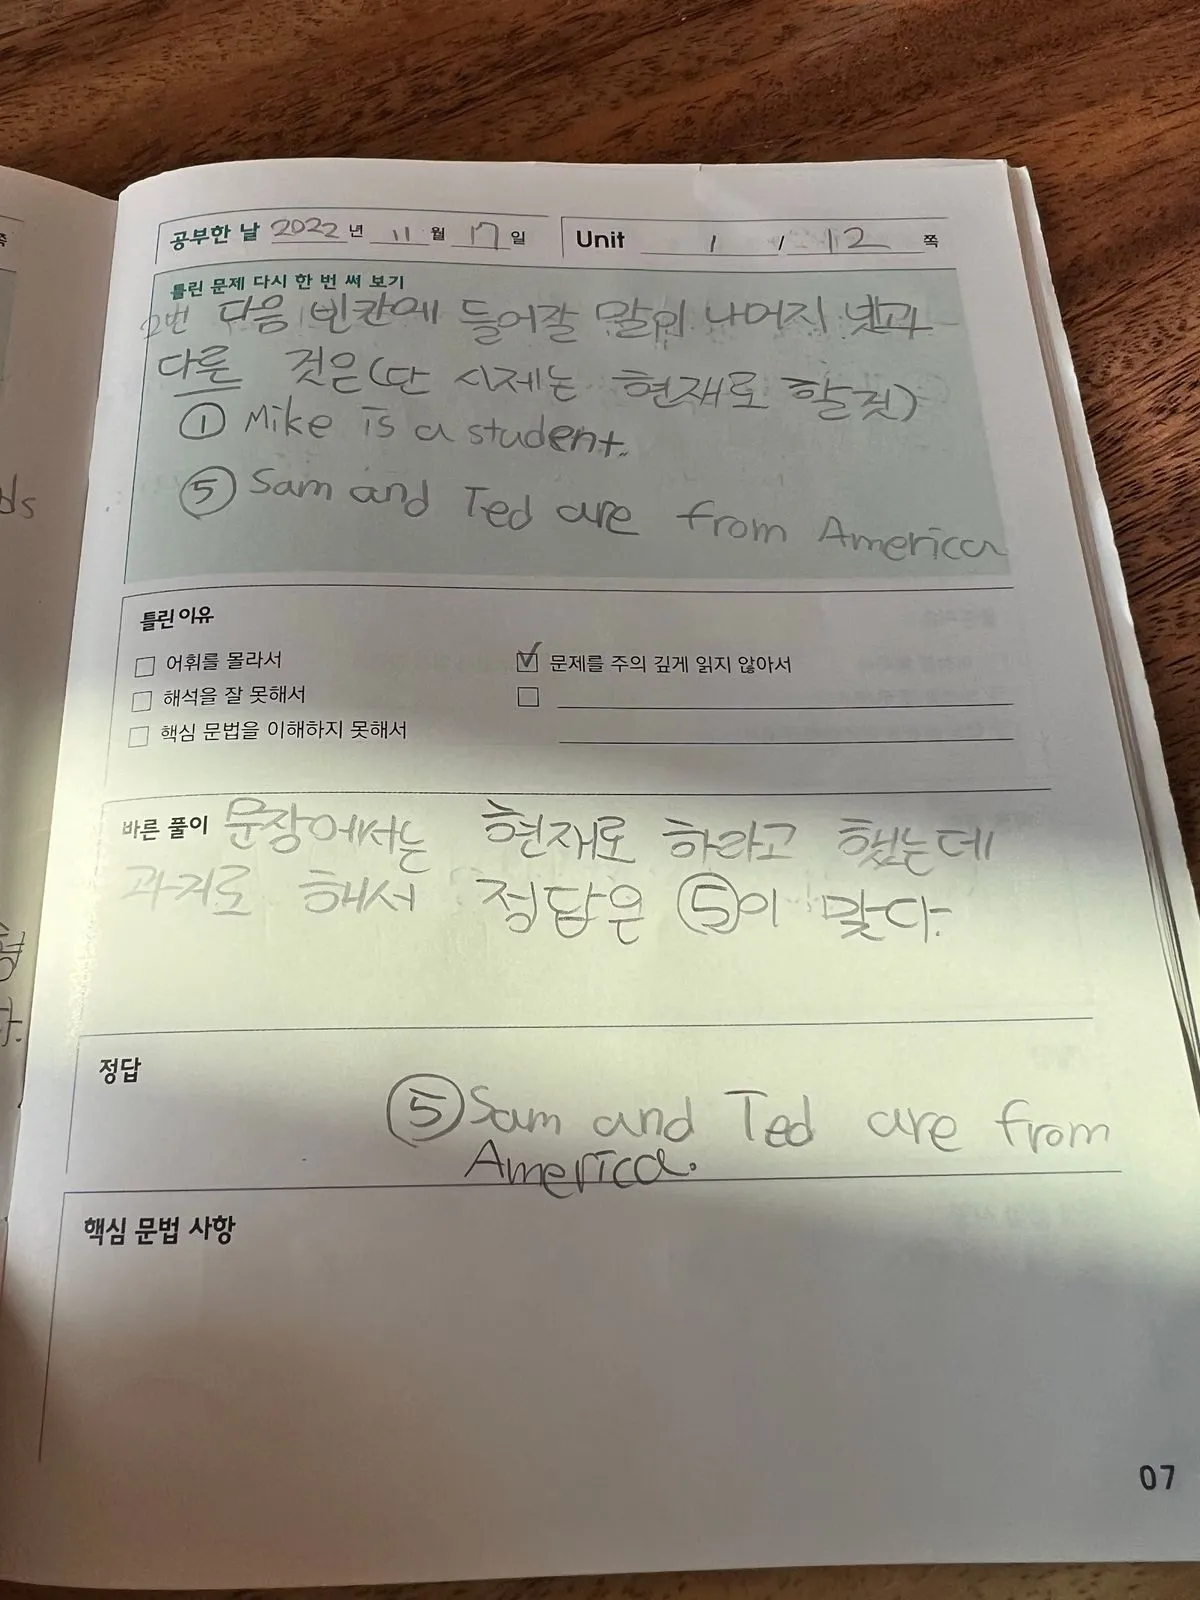 공부한 날 2022 년 11 월 17 일 Unit 1 / 12 쪽
틀린 문제 다시 한 번 써 보기
2번 다음 빈칸에 들어갈 말이 나머지 넷과
다른 것은(단 시제는 현재로 할것)
① Mike is a student.
⑤ Sam and Ted are from America
틀린 이유
어휘를 몰라서
문제를 주의 깊게 읽지 않아서
해석을 잘 못해서
핵심 문법을 이해하지 못해서
바른 풀이 문장에서는 현재로 하라고 했는데
과거로 해서 정답은 ⑤이 맞다.
정답
⑤ Sam and Ted are from
America.
핵심 문법 사항
07
ds